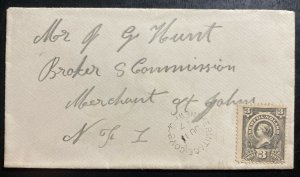 Mr J G Hunt
Broker & Commission
Merchant St Johns
N F L
COVE
JU
3 3